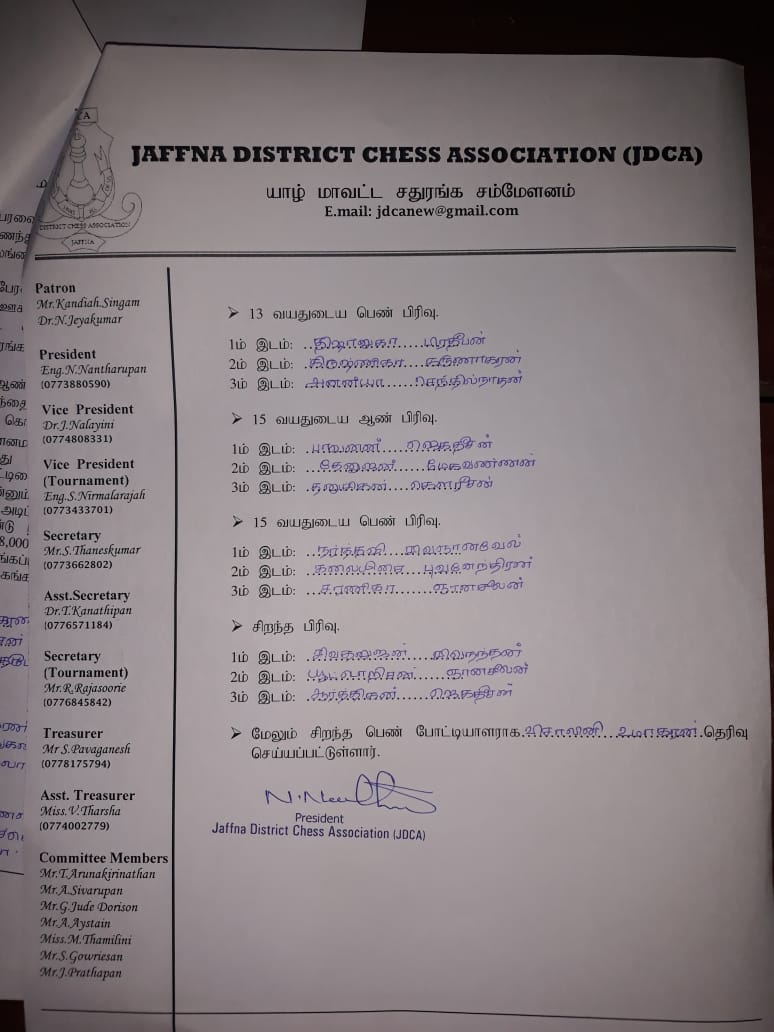 JAFFNA DISTRICT CHESS ASSOCIATION (JDCA)
யாழ் மாவட்ட சதுரங்க சம்மேளனம்
E.mail: jdcanew@gmail.com
DISTRICT CHESS ASSOCIATION
JAFFNA
Patron
Mr.Kandiah.Singam
Dr.N.Jeyakumar
President
Eng.N.Nantharupan
(0773880590)
Vice President
Dr.J.Nalayini
(0774808331)
Vice President
(Tournament)
Eng.S.Nirmalarajah
(0773433701)
Secretary
Mr.S.Thaneskumar
(0773662802)
Asst.Secretary
Dr.T.Kanathipan
(0776571184)
Secretary
(Tournament)
Mr.R.Rajasoorie
(0776845842)
Treasurer
Mr S.Pavaganesh
(0778175794)
Asst. Treasurer
Miss.V.Tharsha
(0774002779)
Committee Members
Mr.T.Arunakirinathan
Mr.A.Sivarupan
Mr.G.Jude Dorison
Mr.A.Aystain
Miss.M.Thamilini
Mr.S.Gowriesan
Mr.J.Prathapan
➢ 13 வயதுடைய பெண் பிரிவு.
1ம் இடம்: பிரதீபன்
2ம் இடம்: கருணாகரன்
3ம் இடம்: அனனியா செந்தில்நாதன்
➢ 15 வயதுடைய ஆண் பிரிவு.
1ம் இடம்: ஜெகதீசன்
2ம் இடம்: மேகவண்ணன்
3ம் இடம்: கௌரீசன்
➢ 15 வயதுடைய பெண் பிரிவு.
1ம் இடம்: சிவஞானவேல்
2ம் இடம்: புவனேந்திரன்
3ம் இடம்: ஞானசீலன்
➢ சிறந்த பிரிவு.
1ம் இடம்: சிவநந்தன்
2ம் இடம்: ஞானசீலன்
3ம் இடம்: ஜெகதீசன்
➢ மேலும் சிறந்த பெண் போட்டியாளராக தெரிவு
செய்யப்பட்டுள்ளார்.
President
Jaffna District Chess Association (JDCA)